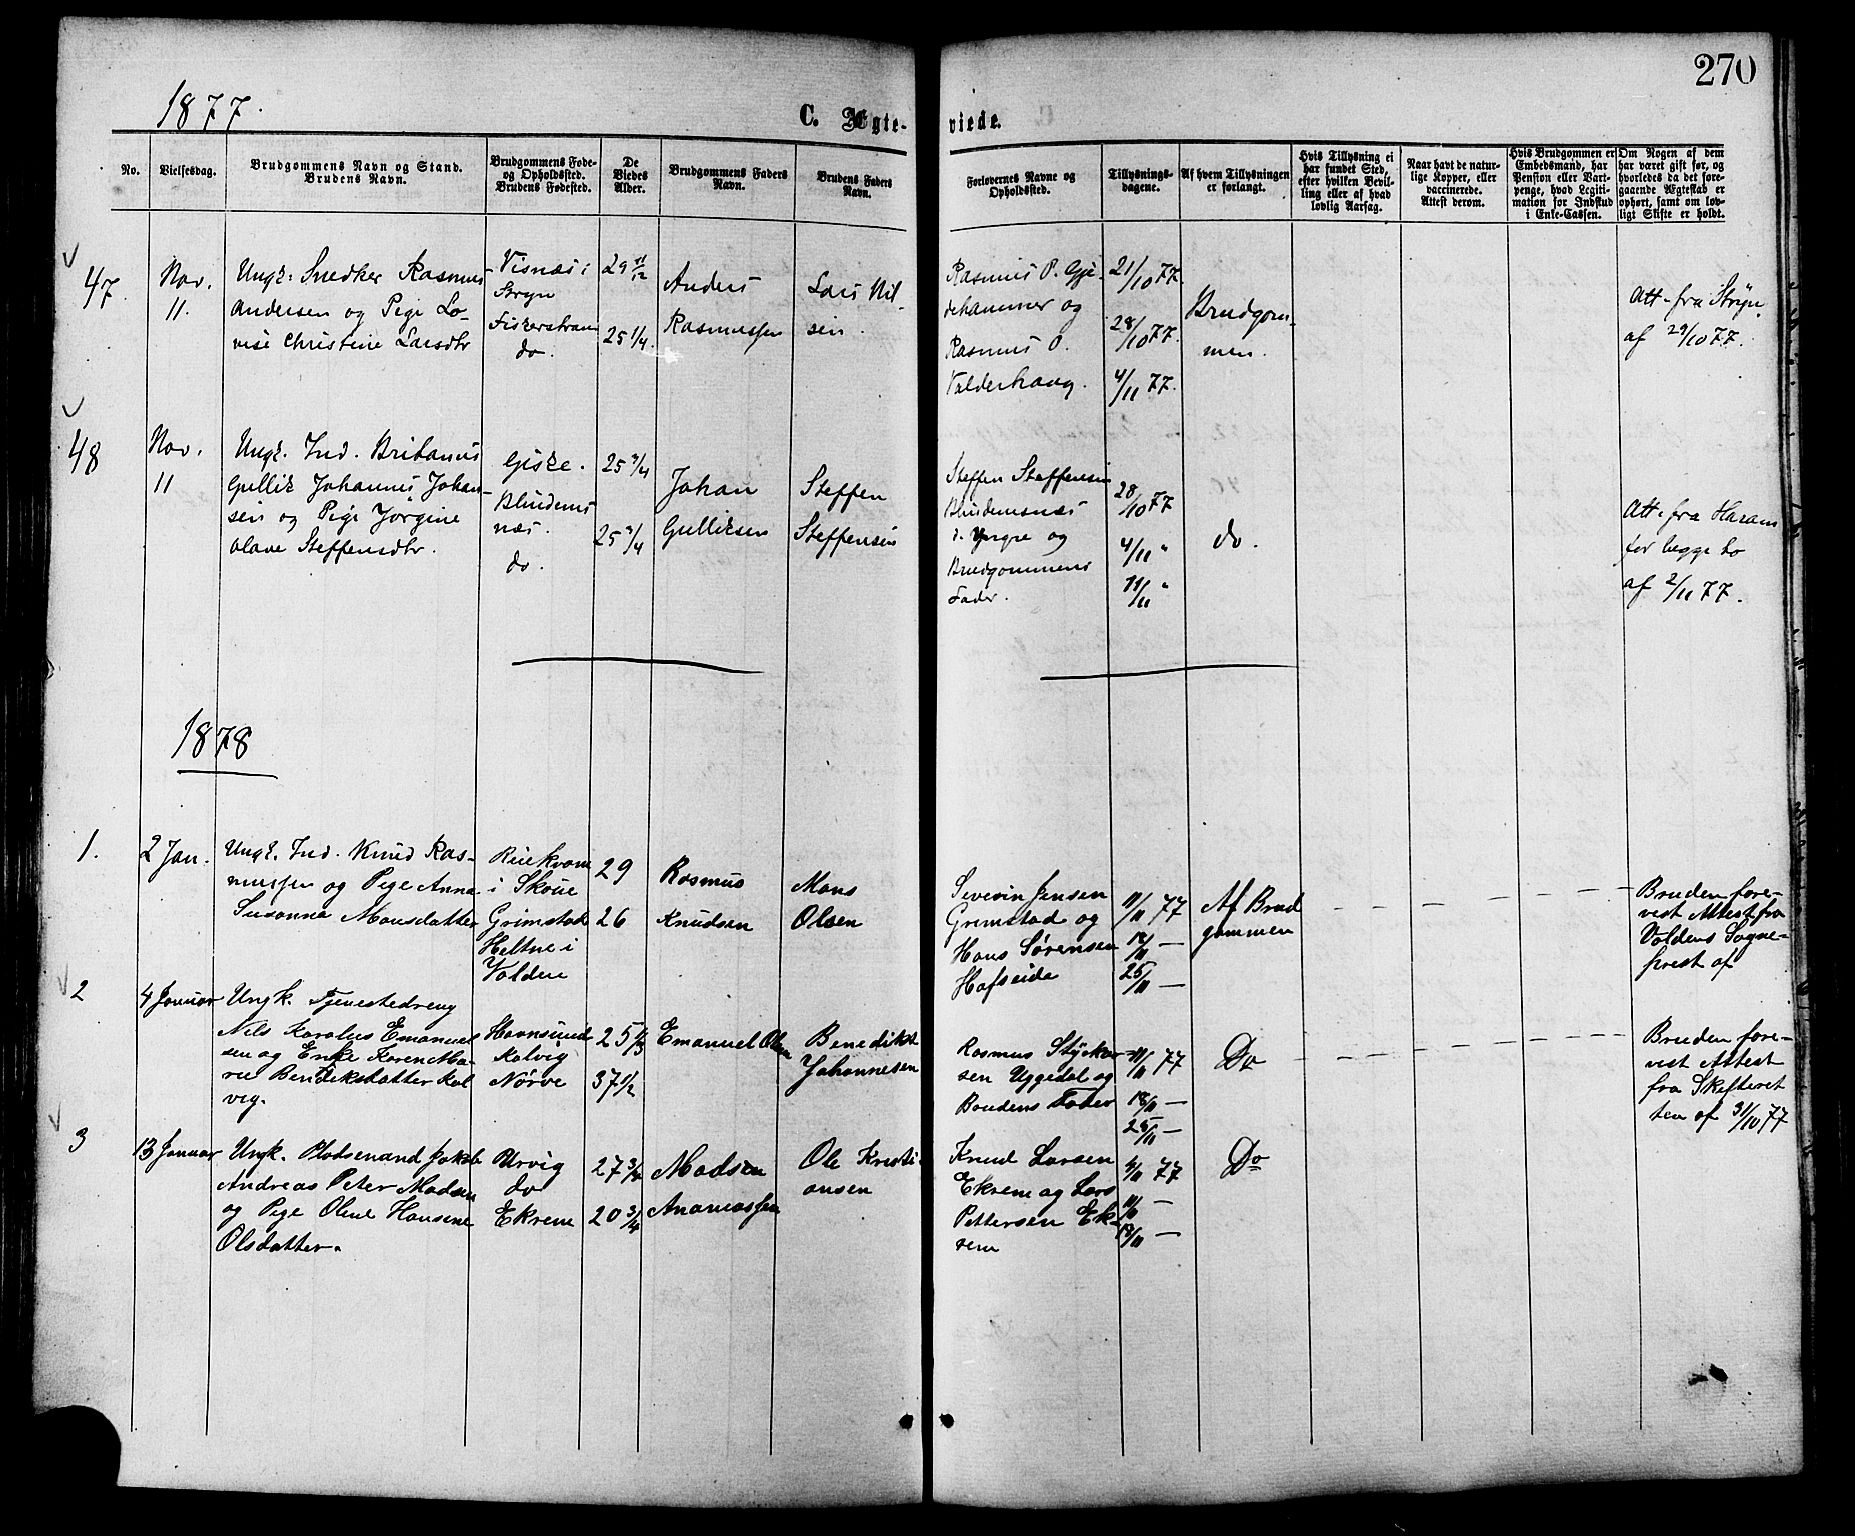 270
1877.
C. Ægte-
viede.
No.
Vielsesdag.
Brudgommens Navn og Stand.
Brudens Navn.
Brudgommens Føde-
og Opholdssted.
Brudens Fødested.
De
Viedes
Alder.
Brudgommens Faders
Navn.
Brudens Faders
Navn.
Forlovernes Navne og
Opholdssted.
Tillysnings-
dagene.
Af hvem Tillysningen
er forlangt.
Hvis Tillysning ei
har fundet Sted,
efter hvilken Bevil-
ling eller af hvad
lovlig Aarsag.
Naar havt de natur-
lige Kopper, eller
vaccinerede.
Attest derom.
Hvis Brudgommen er
Embedsmand, har
Pension eller Vart-
penge, hvad Legiti-
mation for Indskud
i Enke-Cassen.
Om Nogen af dem
har været gift før, og
hvorledes da det fore-
gaaende Ægteskab er
ophørt, samt om lov-
ligt Skifte er holdt.
47.
Nov.
11.
Ungk: Snedker Rasmus
Andersen og Pige Lo-
vise Christine Larsdtr
Visnæs i
Stryn
Fiskerstrand
do.
29 11/12
25 1/4.
Anders
Rasmussen
Lars Nil-
sen.
Rasmus P. Gje-
dehammer og
Rasmus O.
Valderhaug.
21/10 77.
28/10 77.
4/11 77.
Brudgom-
men.
Att. fra Stryn
af 29/10 77.
48
Nov.
11
Ungk. Ind. Britanus
Gullik Johannes Johan-
sen og Pige Jorgine
Olave Steffensdtr.
Giske.
Blindems
næs.
do.
25 3/4
25 3/4
Johan
Gulliksen
Steffen
Steffensen
Steffen Steffensen
Blindemsnæs
i. Yngre og
Brudgommens
Fader.
28/10 77
4/11 "
11/11 "
do.
Att. fra Haram
for begge to
af 2/11 77.
1878
1.
2 Jan.
Ungk. Ind. Knud Ras-
mussen og Pige Anna
Susanna Monsdatter
i Skoue
Grimstad
Heltne i
Volden
29
26
Rasmus
Knudsen
Mons
Olsen
Severin Jensen
Grimstad og
Hans Sørensen
Hafseide
11/11 77
18/11 —
25/11 —
Af Brud
gommen
Bruden fore-
vist Attest fra
Voldens Sogne-
prest af
2
4 Januar
Ungk. Tjenestedreng
Nils Karolus Emanuel
sen og Enke Karen Ma-
rie Bendiksdatter Kal
vig.
Havnsund
Kalvig
Nørve
25 1/3
37 1/2
Emanuel Olsen
Benedikt
Johannesen
Rasmus Styckar
sen Uggedal og
Brudens Fader
11/11 77
18/11 —
25/11 —
Do
Bruden fore-
vist Attest
fra Skifteret
ten af 31/10 77
3
13 Januar
Ungk. Pladsemand Jakob
Andreas Peter Madsen
og Pige Oline Hansine
Olsdatter.
Urvig
do
Ekrene
27 3/4
20 3/4
Madsen
Ananiassen
Ole Kristi
ansen
Knud Larsen
Ekrene og Lars
Pettersen Ek-
rene
4/11 77
11/11 —
18/11 —
Do